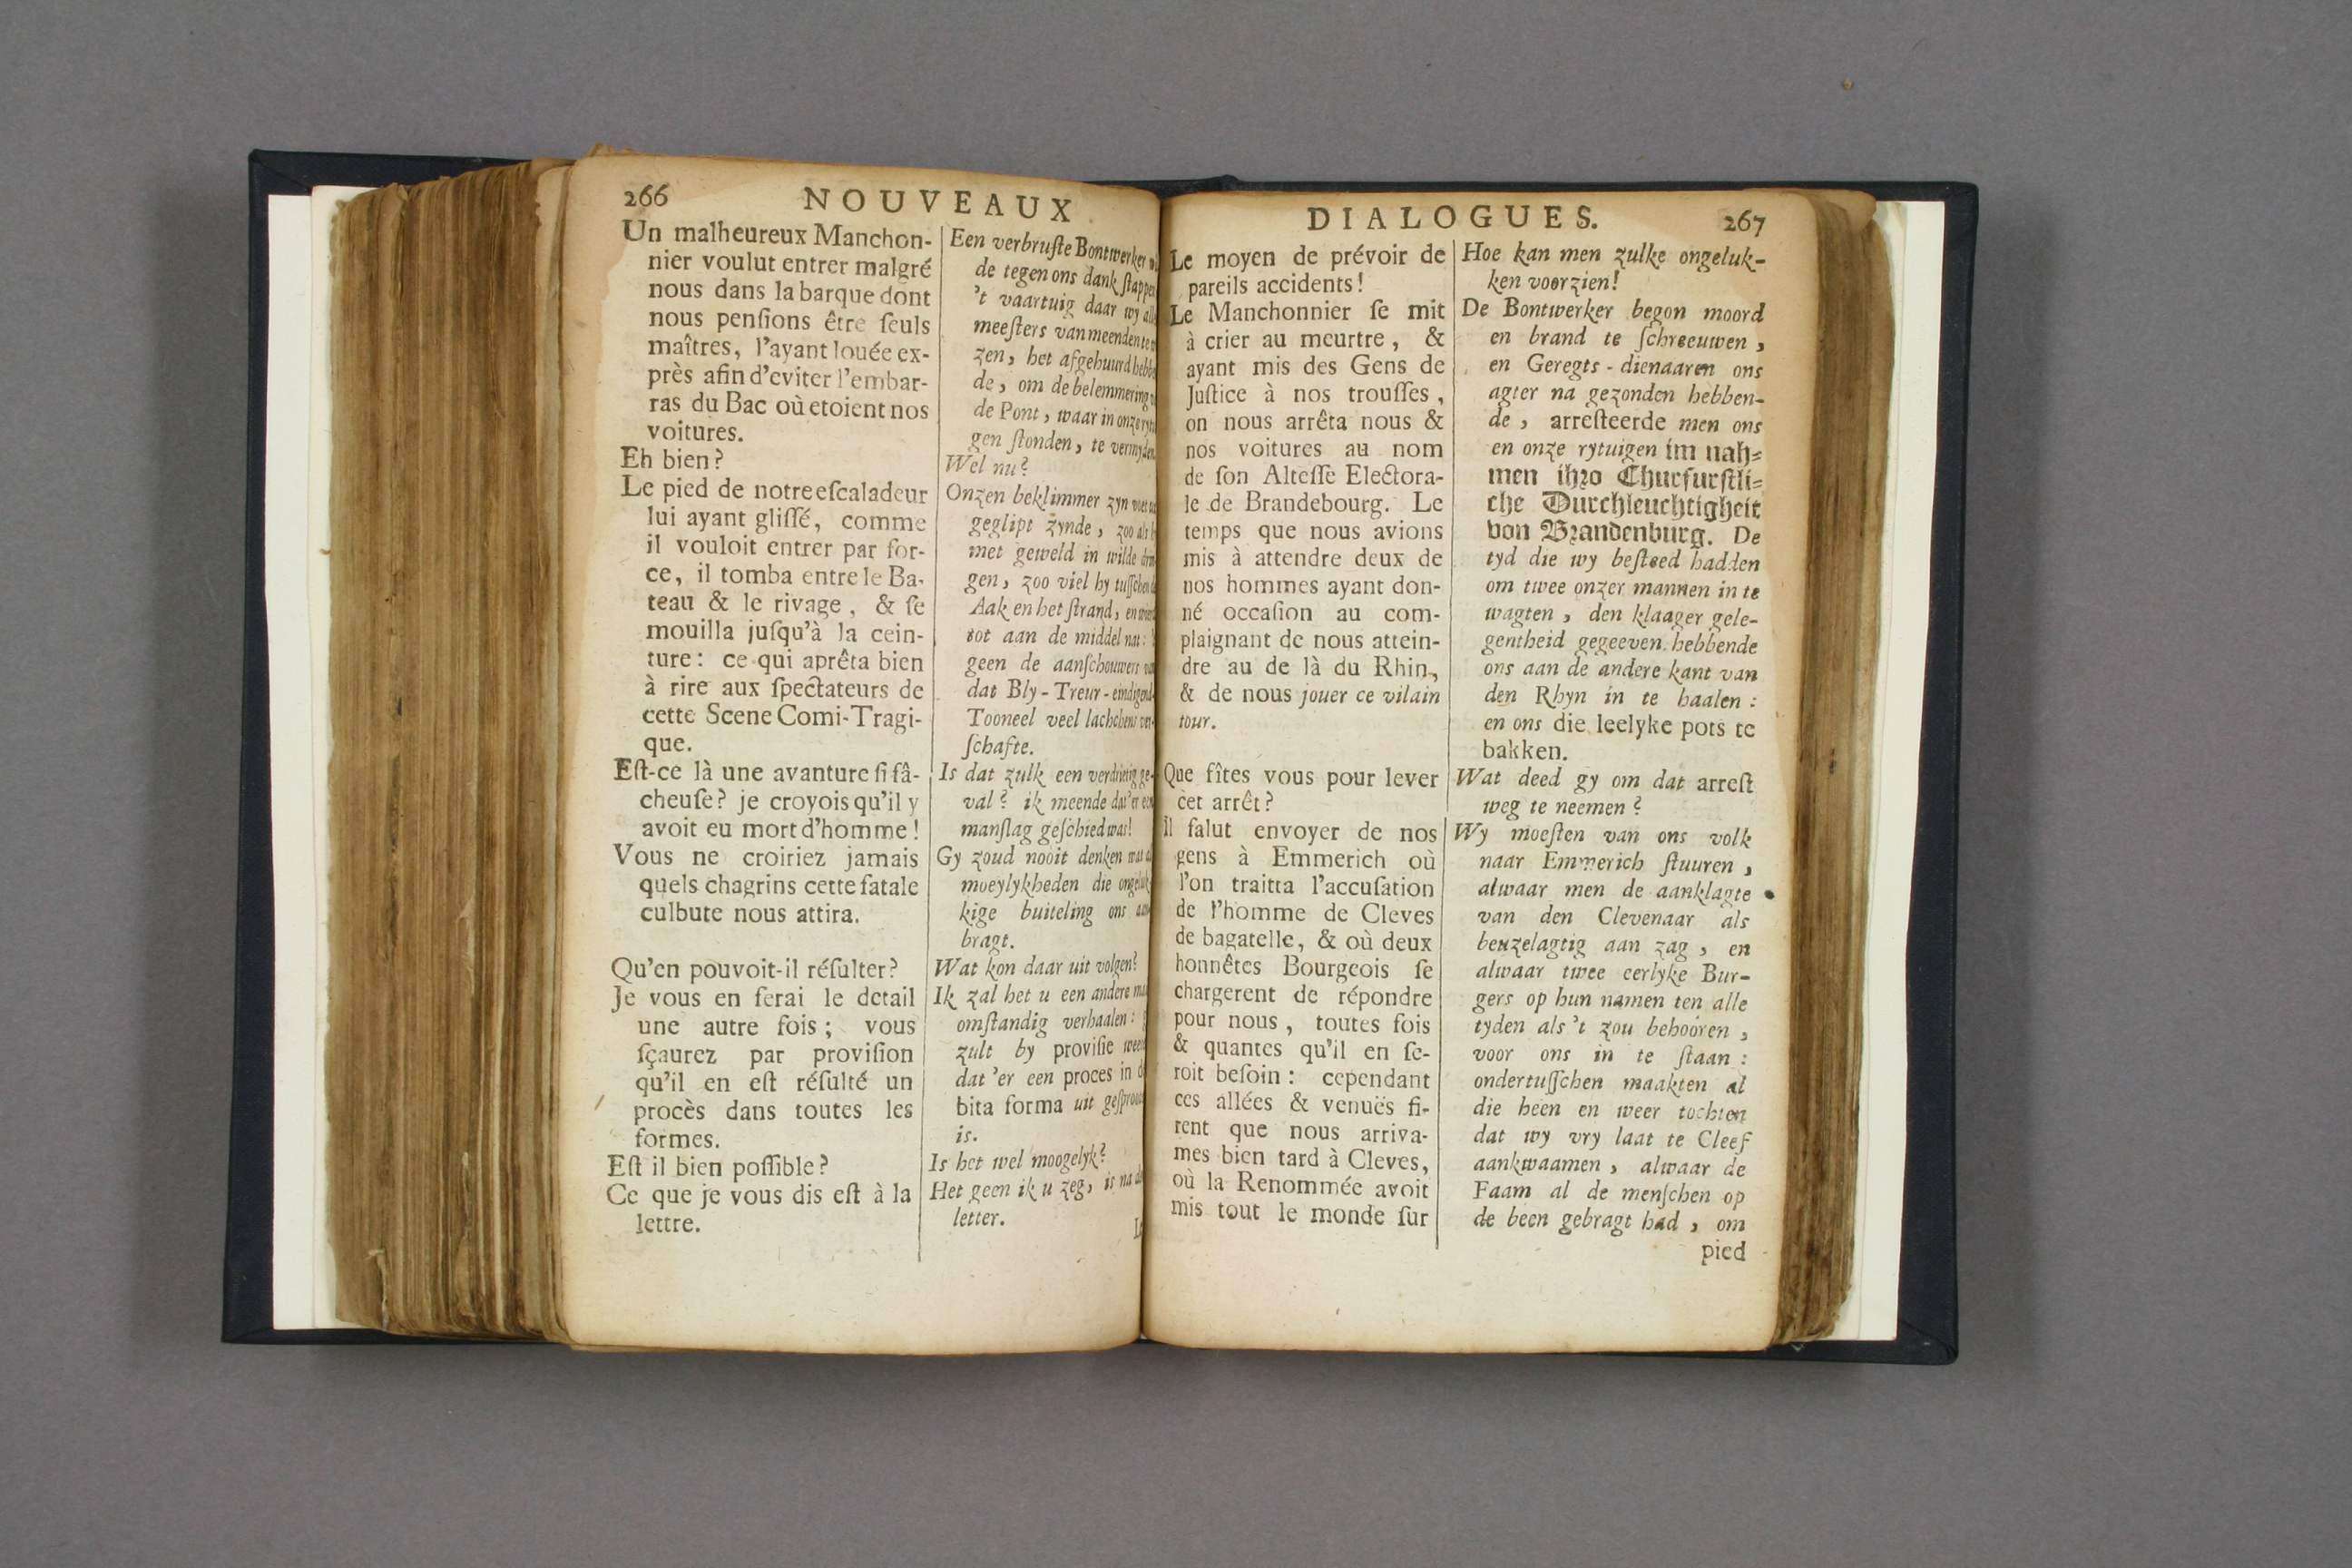 266 NOUVEAUX
Un malheureux Manchon-
nier voulut entrer malgré
nous dans la barque dont
nous penſions être ſeuls
maîtres, l'ayant louée ex-
près afin d'eviter l'embar-
ras du Bac où etoient nos
voitures.
Eh bien?
Le pied de notre eſcaladeur
lui ayant gliſſé, comme
il vouloit entrer par for-
ce, il tomba entre le Ba-
teau & le rivage, & ſe
mouilla juſqu'à la cein-
ture: ce qui aprêta bien
à rire aux ſpectateurs de
cette Scene Comi-Tragi-
que.
Eſt-ce là une avanture ſi fâ-
cheuſe? je croyois qu'il y
avoit eu mort d'homme!
Vous ne croiriez jamais
quels chagrins cette fatale
culbute nous attira.
Qu'en pouvoit-il réſulter?
Je vous en ferai le detail
une autre fois; vous
ſçaurez par proviſion
qu'il en eſt réſulté un
procès dans toutes les
formes.
Eſt il bien poſſible?
Ce que je vous dis eſt à la
lettre.
Een verbruſte Bontwerker
de tegen ons dank ſtappen
't vaartuig daar wy
meeſters van meenden te
zen, het afgehuurd
de, om de belemmering
de Pont, waar in onze
gen ſtonden, te vermyden.
Wel nu?
Onzen beklimmer zyn voet
geglipt zynde, zoo als
met geweld in wilde
gen, zoo viel hy tuſſchen
Aak en het ſtrand, en
tot aan de middel nat:
geen de aanſchouwers
dat Bly-Treur-eindigend
Tooneel veel lachchens ver-
ſchafte.
Is dat zulk een verdrietig ge-
val? ik meende dat 'er
manſlag geſchied was!
Gy zoud nooit denken wat
moeylykheden die ongeluk-
kige buiteling ons
bragt.
Wat kon daar uit volgen?
Ik zal het u een andere
omſtandig verhaalen:
zult by proviſie
dat 'er een proces in
bita forma uit
is.
Is het wel moogelyk?
Het geen ik u zeg, is na
letter.
DIALOGUES. 267
Le moyen de prévoir de
pareils accidents!
Le Manchonnier ſe mit
à crier au meurtre, &
ayant mis des Gens de
Juſtice à nos trouſſes,
on nous arrêta nous &
nos voitures au nom
de ſon Alteſſe Electora-
le de Brandebourg. Le
temps que nous avions
mis à attendre deux de
nos hommes ayant don-
né occaſion au com-
plaignant de nous attein-
dre au de là du Rhin,
& de nous jouer ce vilain
tour.
Que fîtes vous pour lever
cet arrêt?
Il falut envoyer de nos
gens à Emmerich où
l'on traitta l'accuſation
de l'homme de Cleves
de bagatelle, & où deux
honnêtes Bourgeois ſe
chargerent de répondre
pour nous, toutes fois
& quantes qu'il en ſe-
roit beſoin: cependant
ces allées & venuës fi-
rent que nous arriva-
mes bien tard à Cleves,
où la Renommée avoit
mis tout le monde ſur
Hoe kan men zulke ongeluk-
ken voorzien!
De Bontwerker begon moord
en brand te ſchreeuwen,
en Geregts-dienaaren ons
agter na gezonden hebben-
de, arreſteerde men ons
en onze rytuigen im nah-
men ihro Churfurſtli-
che Durchleuchtigheit
von Brandenburg. De
tyd die wy beſteed hadden
om twee onzer mannen in te
wagten, den klaager gele-
gentheid gegeeven hebbende
ons aan de andere kant van
den Rhyn in te haalen:
en ons die leelyke pots te
bakken.
Wat deed gy om dat arreſt
weg te neemen?
Wy moeſten van ons volk
naar Emmerich ſtuuren,
alwaar men de aanklagte
van den Clevenaar als
beuzelagtig aan zag, en
alwaar twee eerlyke Bur-
gers op hun namen ten alle
tyden als 't zou behooren,
voor ons in te ſtaan:
ondertuſſchen maakten al
die heen en weer tochten
dat wy vry laat te Cleef
aankwaamen, alwaar de
Faam al de menſchen op
de been gebragt had, om
pied